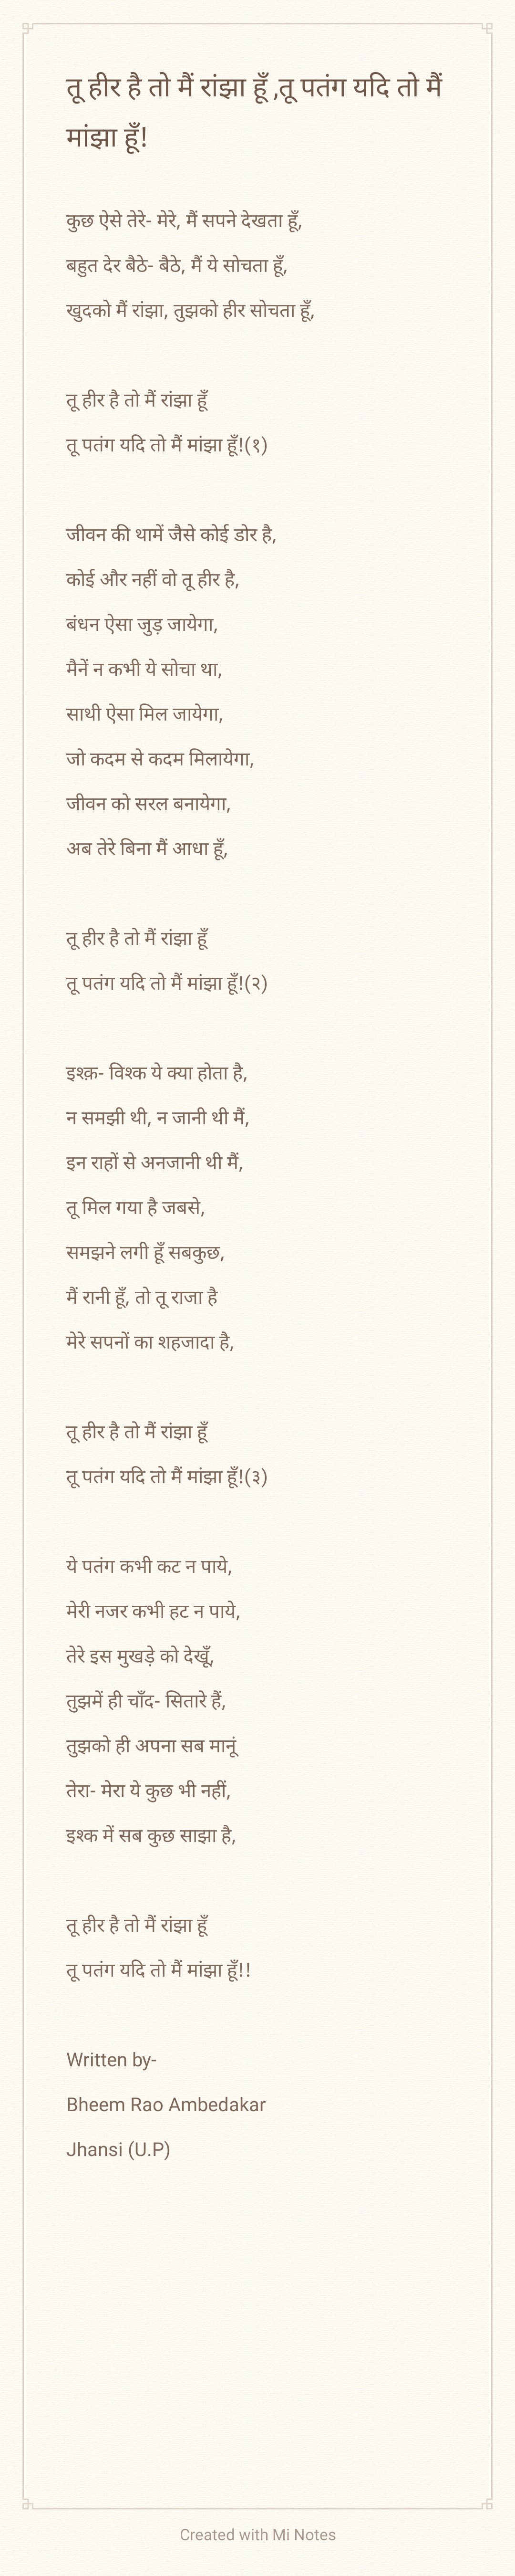 तू हीर है तो मैं रांझा हूँ ,तू पतंग यदि तो मैं
मांझा हूँ!
कुछ ऐसे तेरे- मेरे, मैं सपने देखता हूँ,
बहुत देर बैठे- बैठे, मैं ये सोचता हूँ,
खुदको मैं रांझा, तुझको हीर सोचता हूँ,
तू हीर है तो मैं रांझा हूँ
तू पतंग यदि तो मैं मांझा हूँ!(१)
जीवन की थामें जैसे कोई डोर है,
कोई और नहीं वो तू हीर है,
बंधन ऐसा जुड़ जायेगा,
मैनें न कभी ये सोचा था,
साथी ऐसा मिल जायेगा,
जो कदम से कदम मिलायेगा,
जीवन को सरल बनायेगा,
अब तेरे बिना मैं आधा हूँ,
तू हीर है तो मैं रांझा हूँ
तू पतंग यदि तो मैं मांझा हूँ!(२)
इश्क़- विश्क ये क्या होता है,
न समझी थी, न जानी थी मैं,
इन राहों से अनजानी थी मैं,
तू मिल गया है जबसे,
समझने लगी हूँ सबकुछ,
मैं रानी हूँ, तो तू राजा है
मेरे सपनों का शहजादा है,
तू हीर है तो मैं रांझा हूँ
तू पतंग यदि तो मैं मांझा हूँ!(३)
ये पतंग कभी कट न पाये,
मेरी नजर कभी हट न पाये,
तेरे इस मुखड़े को देखूँ,
तुझमें ही चाँद- सितारे हैं,
तुझको ही अपना सब मानूं
तेरा- मेरा ये कुछ भी नहीं,
इश्क में सब कुछ साझा है,
तू हीर है तो मैं रांझा हूँ
तू पतंग यदि तो मैं मांझा हूँ!!
Written by-
Bheem Rao Ambedakar
Jhansi (U.P)
Created with Mi Notes